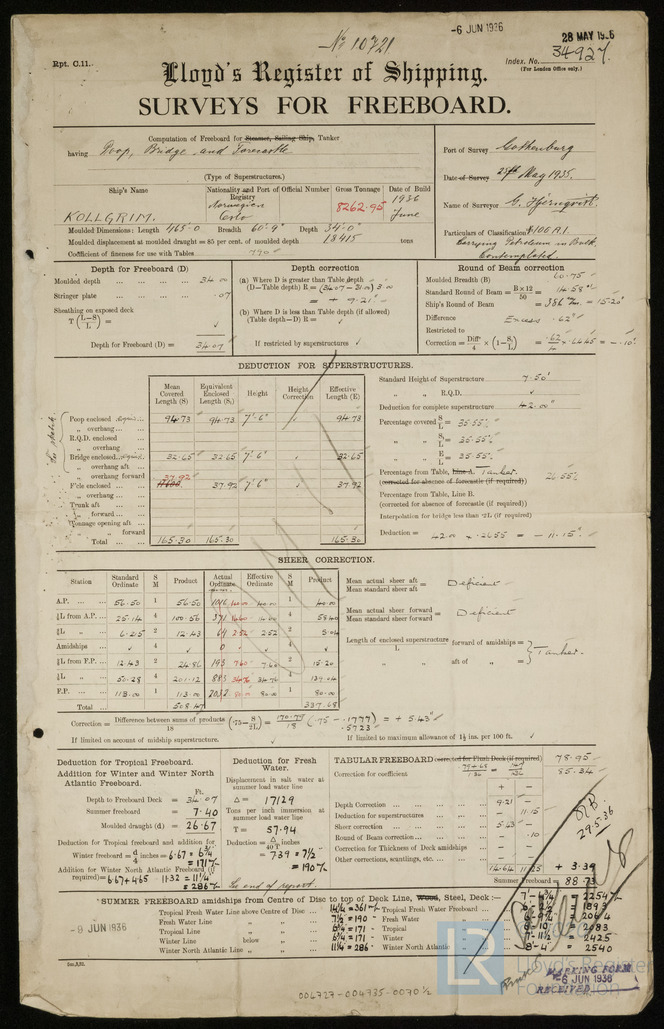 -6 JUN 1936
28 MAY 1936
No 10721
Rpt. C.11.
Index. No. 34927
(For London Office only.)
Lloyd's Register of Shipping.
SURVEYS FOR FREEBOARD.
Computation of Freeboard for Steamer, Sailing Ship, Tanker
having Poop, Bridge and Forecastle
(Type of Superstructures.)
Port of Survey Gothenburg
Date of Survey 25th May 1935.
Name of Surveyor G. Hjernqvist.
Particulars of Classification 100 A.1.
Carrying Petroleum in Bulk.
Contemplated.
Ship's Name
Nationality and Port of Registry
Official Number
Gross Tonnage
Date of Build
KOLLGRIM.
Norwegian
Oslo
8262.95
1936
June
Moulded Dimensions: Length 465-0 Breadth 60'-9" Depth 34'-0"
Moulded displacement at moulded draught = 85 per cent. of moulded depth 18415 tons
Coefficient of fineness for use with Tables .770
Depth for Freeboard (D)
Moulded depth ... 34.00
Stringer plate ... .07
Sheathing on exposed deck
T (L-S / L) =
Depth for Freeboard (D) = 34.07
Depth correction
(a) Where D is greater than Table depth
(D-Table depth) R = (34.07 - 31.00) 3.00
= + 9.21"
(b) Where D is less than Table depth (if allowed)
(Table depth-D) R =
If restricted by superstructures
Round of Beam correction
Moulded Breadth (B) 60.75
Standard Round of Beam = B×12 / 50 = 14.58"
Ship's Round of Beam = 386 m/m. = 15.20"
Difference Excess .62"
Restricted to
Correction = Diff / 4 × (1 - S₁ / L) = .62 / 4 × .6445 = -.10"
DEDUCTION FOR SUPERSTRUCTURES.
Mean Covered Length (S)
Equivalent Enclosed Length (S₁)
Height
Height Correction
Effective Length (E)
Poop enclosed ... 94.73 94.73 7'-6" 94.73
„ overhang ...
R.Q.D. enclosed
„ overhang
Bridge enclosed ... 32.65 32.65 7'-6" 32.65
„ overhang aft ...
„ overhang forward
F'cle enclosed ... 37.92 37.92 7'-6" 37.92
„ overhang ...
Trunk aft ...
„ forward ...
Tonnage opening aft ...
„ forward
Total ... 165.30 165.30 165.30
Standard Height of Superstructure 7.50'
„ „ R.Q.D.
Deduction for complete superstructure 42.00"
Percentage covered S / L = 35.55%
„ „ S₁ / L = 35.55%
„ „ E / L = 35.55%
Percentage from Table, Line A. Tanker.
(corrected for absence of forecastle (if required)) 26.55%
Percentage from Table, Line B.
(corrected for absence of forecastle (if required))
Interpolation for bridge less than ·2L (if required)
Deduction = 42.00 × .2655 = - 11.15"
SHEER CORRECTION.
Station
Standard Ordinate
S M
Product
Actual Ordinate
Effective Ordinate
S M
Product
A.P. ... 56.50 1 56.50 1016 40.00 40.00 1 40.00
⅙L from A.P. ... 25.14 4 100.56 371 14.60 4 58.40
⅓L „ 2 12.43 64 2.52 2.52 2 5.04
Amidships 4 0 4
⅓L from F.P. ... 12.43 2 24.86 193 7.60 7.60 2 15.20
⅙L „ ... 50.28 4 201.12 883 34.76 34.76 4 139.04
F.P. ... 113.00 1 113.00 2032 80.00 80.00 1 80.00
Total ... 508.47 337.68
Mean actual sheer aft / Mean standard sheer aft = Deficient
Mean actual sheer forward / Mean standard sheer forward = Deficient
Length of enclosed superstructure / L forward of amidships =
„ aft of „ = Tanker.
Correction = Difference between sums of products / 18 (·75 - S / 2L) = 170.79 / 18 (.75 - .1777) = + 5.43"
.5723
If limited on account of midship superstructure.
If limited to maximum allowance of 1½ ins. per 100 ft.
Deduction for Tropical Freeboard.
Addition for Winter and Winter North
Atlantic Freeboard.
Ft.
Depth to Freeboard Deck = 34.07
Summer freeboard = 7.40
Moulded draught (d) = 26.67
Deduction for Tropical freeboard and addition for
Winter freeboard = d / 4 inches = 6.67 = 6¾"
= 171 m/m
Addition for Winter North Atlantic Freeboard (if
required) = 6.67 + 4.65 11.32 = 11¼"
= 286 m/m
Deduction for Fresh
Water.
Displacement in salt water at
summer load water line
Δ = 17129
Tons per inch immersion at
summer load water line
T = 57.94
Deduction = Δ / 40 T inches
= 7.39 = 7½"
= 190 m/m
See end of report.
TABULAR FREEBOARD corrected for Flush Deck (if required) 78.95
Correction for coefficient 85.34
+ -
Depth Correction ... 9.21 -
Deduction for superstructures ... - 11.15
Sheer correction ... 5.43 -
Round of Beam correction ... - .10
Correction for Thickness of Deck amidships
Other corrections, scantlings, etc.
14.64 11.25 + 3.39
Summer Freeboard = 88.73
29.5.36
SUMMER FREEBOARD amidships from Centre of Disc to top of Deck Line, Wood, Steel, Deck :-
Tropical Fresh Water Line above Centre of Disc ... 14¼ = 361 m/m
Fresh Water Line „ „ ... 7½ = 190
Tropical Line „ „ ... 6¾ = 171
Winter Line below „ „ ... 6¾ = 171
Winter North Atlantic Line „ „ ... 11¼ = 286
Tropical Fresh Water Freeboard ... 1893
Fresh Water „ 2064
Tropical „ 2083
Winter „ 7-11½ = 2425
Winter North Atlantic „ 8'-4" = 2540
-8 JUN 1936
MARKING FORM
-6 JUN 1936
RECEIVED
LR
Lloyd's Register
Foundation
004727-004735-0070 ½